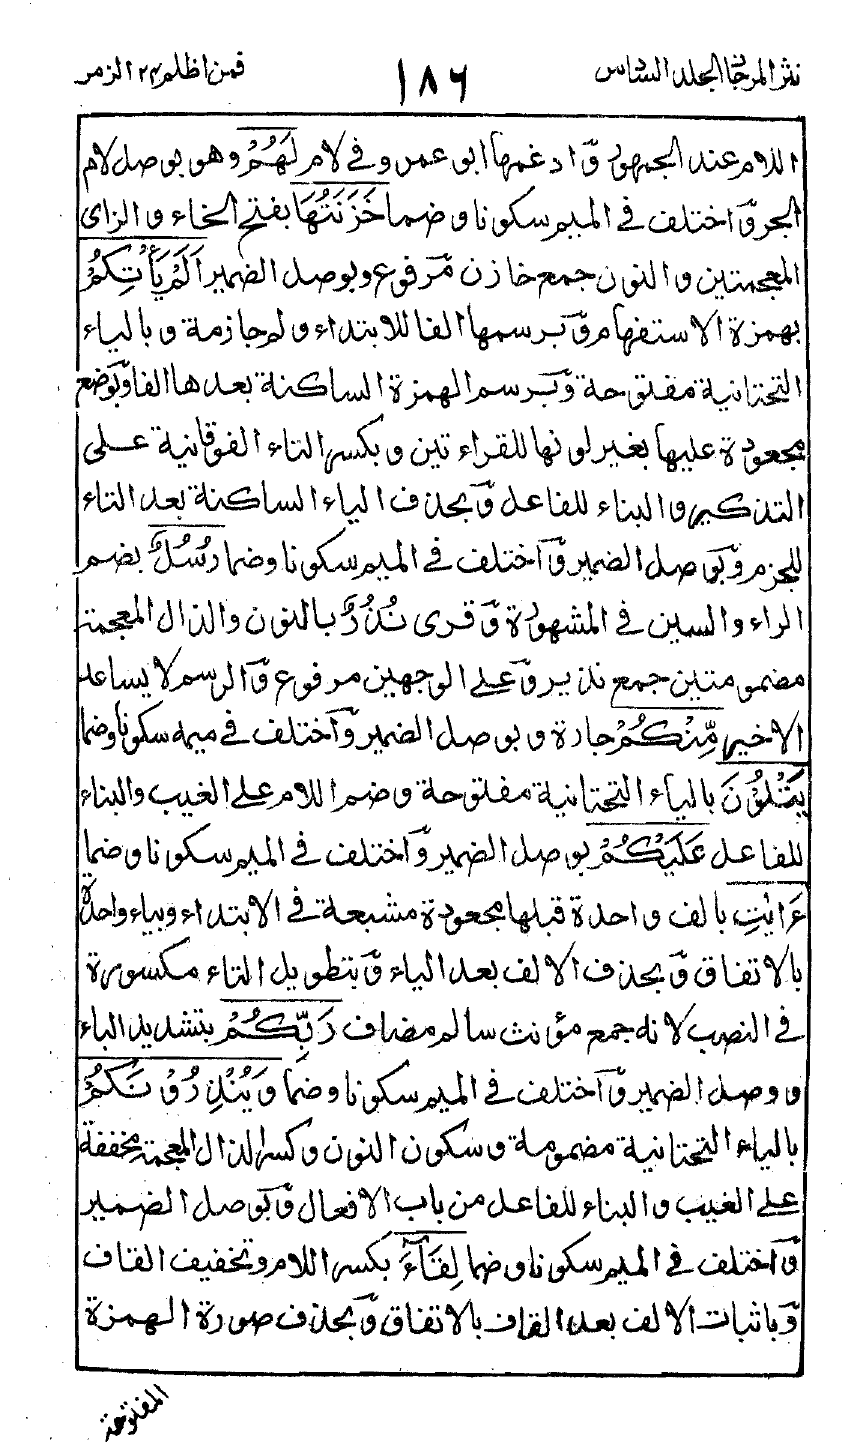 نثر المرجان المجلد السادس ١٨٦ فمن اظلم ٢٤ الزمر
اللام عند الجمهور وادغمها ابو عمرو و في لام لَهُمْ وهو بوصل لام
الجر واختلف في الميم سكونا وضما خَزَنَتُهَا بفتح الخاء والزاى
المعجمتين والنون جمع خازن مرفوع وبوصل الضمير اَلَمْ يَأْتِكُمْ
بهمزة الاستفهام وبرسمها الفا للابتداء ولم جازمة وبالياء
التحتانية مفتوحة وبرسم الهمزة الساكنة بعدها الفا وبوضع
مجعودة عليها بغير لونها للقراءتين وبكسر التاء الفوقانية على
التذكير والبناء للفاعل وبحذف الياء الساكنة بعد التاء
للجزم وبوصل الضمير واختلف في الميم سكونا وضما رُسُلٌ بضم
الراء والسين في المشهورة وقرى نُذُرٌ بالنون والذال المعجمة
مضمومتين جمع نذير وعلى الوجهين مرفوع والرسم لا يساعد
الاخير مِّنْكُمْ جارة وبوصل الضمير واختلف في ميمه سكونا وضما
يَتْلُوْنَ بالياء التحتانية مفتوحة وضم اللام على الغيب والبناء
للفاعل عَلَيْكُمْ بوصل الضمير واختلف في الميم سكونا وضما
ءَايٰتِ بالف واحدة قبلها مجعودة مشبعة في الابتداء وبياء واحدة
بالاتفاق وبحذف الالف بعد الياء وبتطويل التاء مكسورة
في النصب لانه جمع مؤنث سالم مضاف رَبِّكُمْ بتشديد الباء
ووصل الضمير واختلف في الميم سكونا وضما وَيُنْذِرُوْنَكُمْ
بالياء التحتانية مضمومة وسكون النون وكسر الذال المعجمة مخففة
على الغيب والبناء للفاعل من باب الافعال وبوصل الضمير
واختلف في الميم سكونا وضما لِقَآءَ بكسر اللام وتخفيف القاف
وباثبات الالف بعد القاف بالاتفاق وبحذف صورة الهمزة
المفتوحة